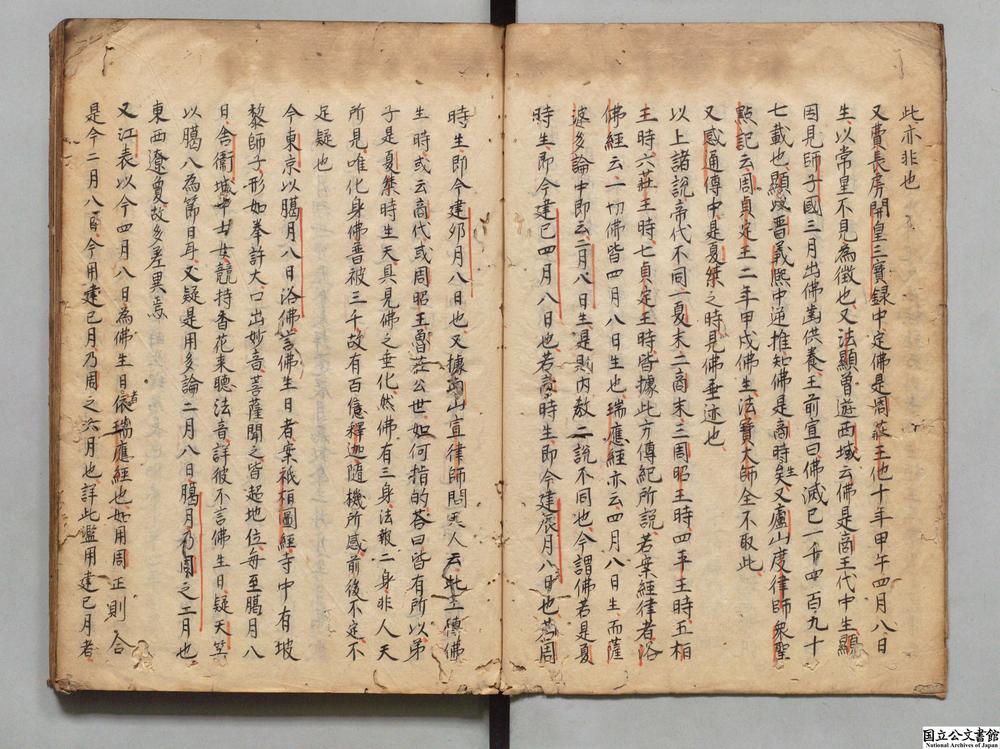 此亦非也
又費長房開皇三寶録中定佛是周莊王他十年甲午四月八日
生以常星不見為徴也又法顯曽遊西域云佛是商王代中生顯
因見師子國三月出佛齒供養王前宣曰佛滅巳一千四百九十
七載也顯以晋義熙中逆推知佛是商時生矣又盧山度律師衆聖
點記云周貞定王二年甲戌佛生法寶大師全不取此
又感通傳中是夏桀之時見佛垂迹也
以上諸說帝代不同一夏末二商末三周昭王時四平王時五桓
王時六莊王時七貞定王時皆據此方傳紀所說若案經律者浴
佛經云一切佛皆四月八日生也瑞應經亦云四月八日生而薩
婆多論中即云二月八日生是則内教二說不同也今謂佛若是夏
時生即今建巳四月八日也若商時生即今建辰月八日也若周
時生即今建夘月八日也又據南山宣律師問天人云此土傳佛
生時或云商代或周昭王魯莊公世如何指的荅曰皆有所以弟
子是夏桀時生天具見佛之垂化然佛有三身法報二身非人天
所見唯化身佛普被三千故有百億釋迦隨機所感前後不定不
足疑也
今東京以臈月八日浴佛言佛生日者案祇桓圖經寺中有坡
黎師子形如拳許大口出妙音菩薩聞之皆起地位毎至臈月八
日舎衞城中士女競持香花来聽法音詳彼不言佛生日疑天竺
以臈八為節日耳又疑是用多論二月八日臈月乃周之二月也
東西遼夐故多差異焉
又江表以今四月八日為佛生日者依瑞應經也如用周正則合
是今二月八日今用建巳月乃周之六月也詳此濫用建巳月者
国立公文書館
National Archives of Japan